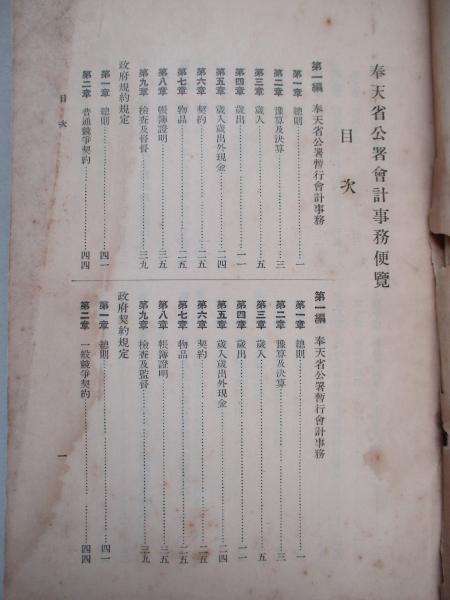 奉天省公署會計事務便覽
目次
第一編 奉天省公署暫行會計事務
第一章 總則 一
第二章 豫算及決算 三
第三章 歲入 五
第四章 歲出 一一
第五章 歲入歲出外現金 二四
第六章 契約 二五
第七章 物品 二五
第八章 帳簿證明 三五
第九章 檢查及督督 三九
政府規約規定
第一章 總則 四一
第二章 普通競爭契約 四四
目次
第一編 奉天省公署暫行會計事務
第一章 總則 一
第二章 豫算及決算 三
第三章 歲入 五
第四章 歲出 一一
第五章 歲入歲出外現金 二四
第六章 契約 二五
第七章 物品 二五
第八章 帳簿證明 三五
第九章 檢查及監督 三九
政府契約規定
第一章 總則 四一
第二章 一般競爭契約 四四
一